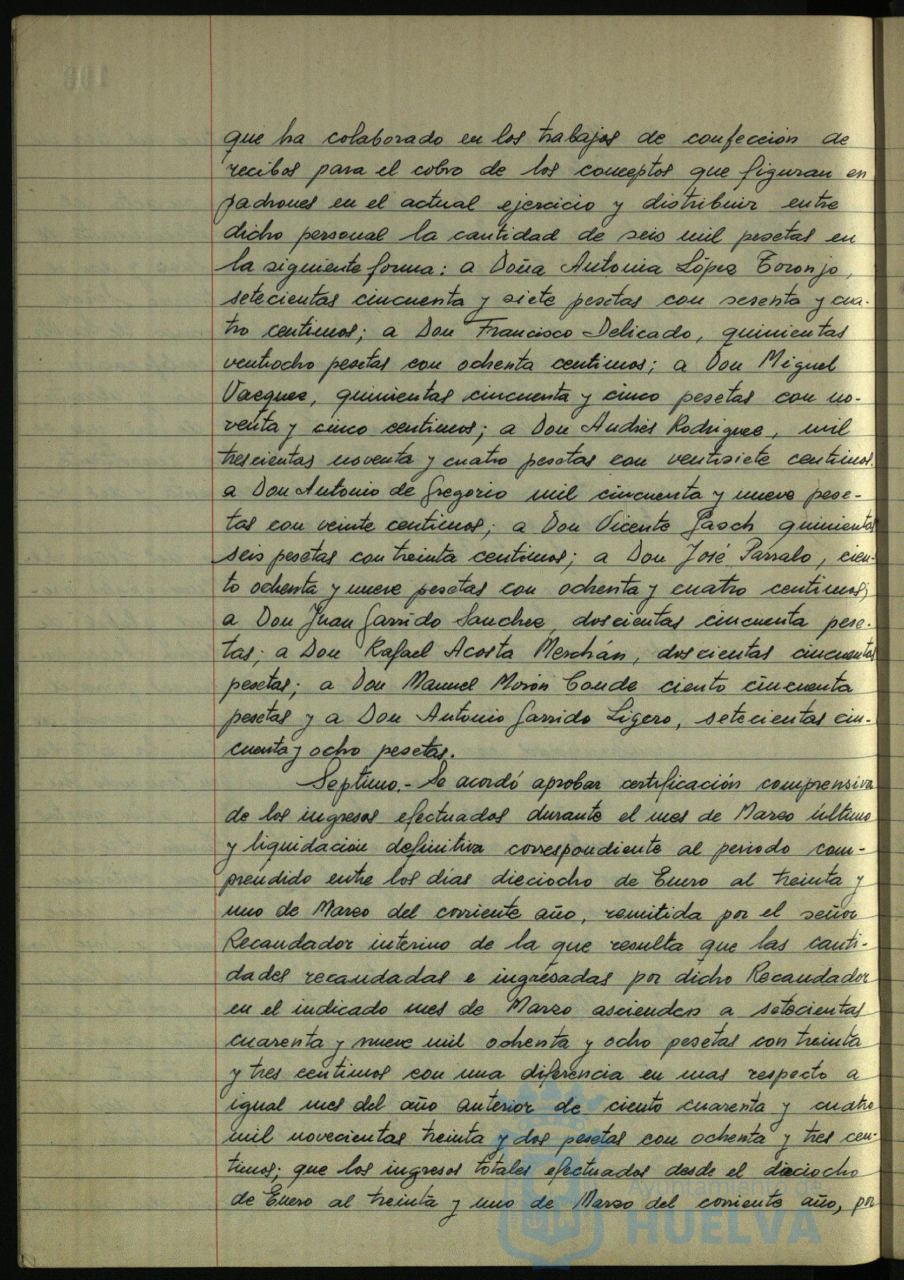 que ha colaborado en los trabajos de confección de
recibos para el cobro de los conceptos que figuran en
padrones en el actual ejercicio y distribuir entre
dicho personal la cantidad de seis mil pesetas en
la siguiente forma: a Doña Antonia López Toronjo,
setecientas cincuenta y siete pesetas con sesenta y cua-
tro centimos; a Don Francisco Delicado, quinientas
ventiocho pesetas con ochenta centimos; a Don Miguel
Vazquez, quinientas cincuenta y cinco pesetas con no-
venta y cinco centimos; a Don Andrés Rodriguez, mil
trescientas noventa y cuatro pesetas con ventisiete centimos.
a Don Antonio de Gregorio mil cincuenta y nueve pese-
tas con veinte centimos; a Don Vicente Gasch quinientas
seis pesetas con treinta centimos; a Don José Parralo, cien-
to ochenta y nueve pesetas con ochenta y cuatro centimos;
a Don Juan Garrido Sanchez, doscientas cincuenta pese-
tas; a Don Rafael Acosta Merchán, doscientas cincuenta
pesetas; a Don Manuel Morón Conde ciento cincuenta
pesetas y a Don Antonio Garrido Ligero, setecientas cin-
cuenta y ocho pesetas.
Septimo.- Se acordó aprobar certificación comprensiva
de los ingresos efectuados durante el mes de Marzo último
y liquidación definitiva correspondiente al periodo com-
prendido entre los días dieciocho de Enero al treinta y
uno de Marzo del corriente año, remitida por el señor
Recaudador interino de la que resulta que las canti-
dades recaudadas e ingresadas por dicho Recaudador
en el indicado mes de Marzo ascienden a setecientas
cuarenta y nueve mil ochenta y ocho pesetas con treinta
y tres centimos con una diferencia en mas respecto a
igual mes del año anterior de ciento cuarenta y cuatro
mil novecientas treinta y dos pesetas con ochenta y tres cen-
timos; que los ingresos totales efectuados desde el dieciocho
de Enero al treinta y uno de Marzo del corriente año, por
HUELVA